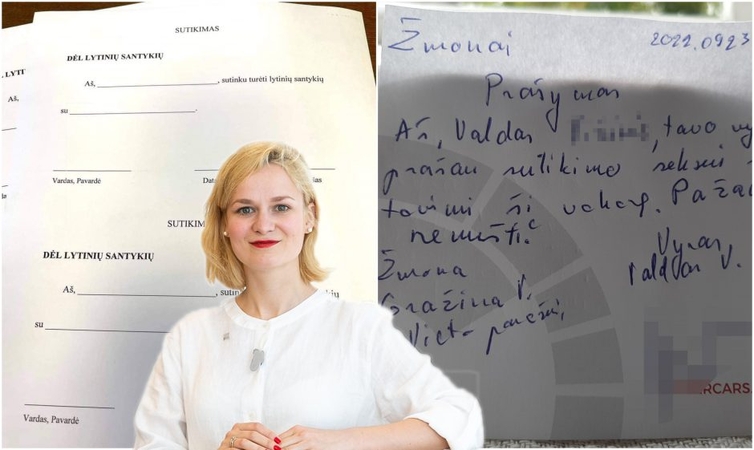 SUTIKIMAS
DĖL LYTINIŲ SANTYKIŲ
Aš, , sutinku turėti lytinių santykių
su .
Vardas, Pavardė
SUTIKI
DĖL LYTINIŲ SANTYKIŲ
Aš, , sutin
su
Vardas, Pavardė
, LYTI
Aš,
Žmonai 2022.0923
Prašymas
Aš, Valdas , tavo vy
prašau sutikimo seksui
tavimi šį vakarą.
nemušti.
Vyras
Valdas V.
Žmona
Gražina V.
RCARS.